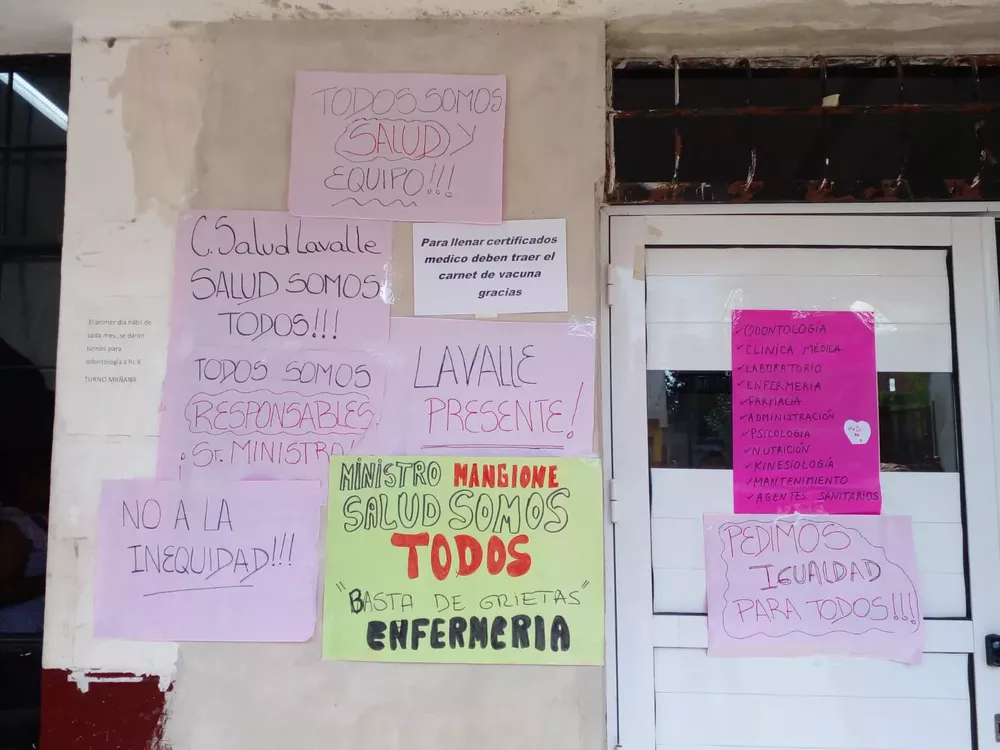 TODOS SOMOS
SALUD Y
EQUIPO!!!
C. Salud Lavalle
SALUD SOMOS
TODOS!!!
Para llenar certificados
medico deben traer el
carnet de vacuna
gracias
El primer dia habil de
cada mes, se daran
turnos para
odontologia a hs 6
TURNO MAÑANA
TODOS SOMOS
RESPONSABLES
¡Sr. MINISTRO!
LAVALLE
PRESENTE!
NO A LA
INEQUIDAD!!!
MINISTRO MANGIONE
SALUD SOMOS
TODOS
"BASTA DE GRIETAS"
ENFERMERIA
✓ODONTOLOGÍA
✓CLINICA MÉDICA
✓LABORATORIO
✓ENFERMERIA
✓FARMACIA
✓ADMINISTRACIÓN
✓PSICOLOGIA
✓NUTRICIÓN
✓KINESIOLOGÍA
✓MANTENIMIENTO
✓AGENTES SANITARIOS
PEDIMOS
IGUALDAD
PARA TODOS!!!